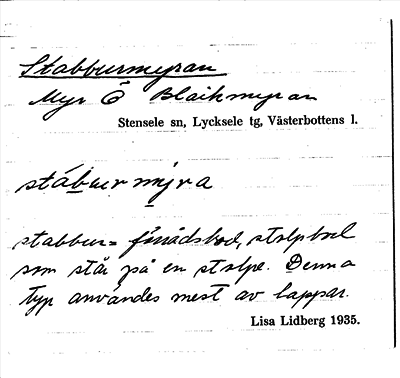 Stabburmyran
Myr Ö Blaikmyran
Stensele sn, Lycksele tg, Västerbottens l.
stáburmyra
stabbur = förrådsbod, stolpbod
som står på en stolpe. Denna
typ användes mest av lappar.
Lisa Lidberg 1935.